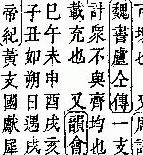 魏書盧仝傳一支
計衆不與齊均也
載充也 又韻會
巳午未申酉戌亥
子丑如朔日遇戌
帝紀黃支國獻犀